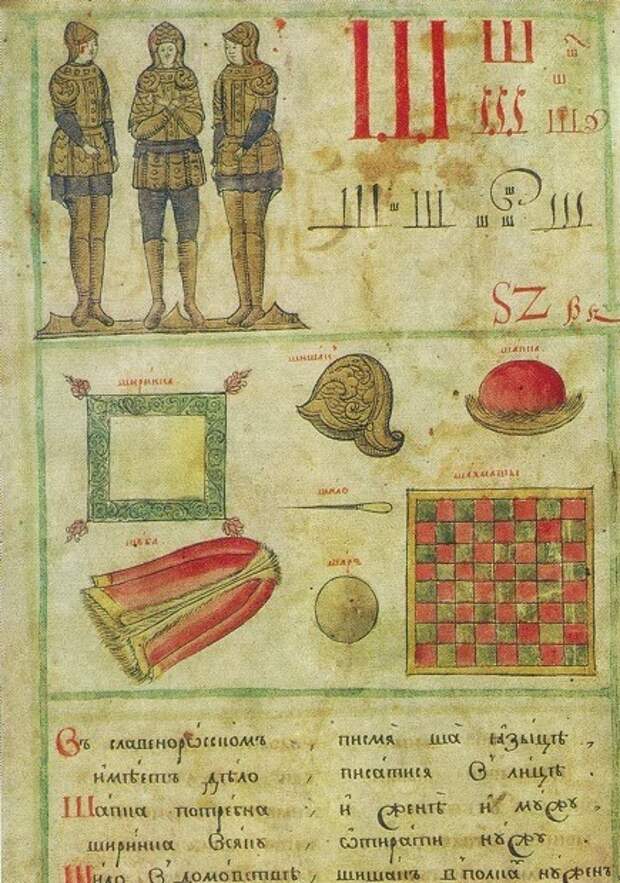 Ш Ш ш
ш
Ш Ш
Ш ш Ш ш ш ш Ш
SZ
ширинка
шишакъ
шапка
шило
шахматы
шуба
шаръ
Въ славенорѡсскомъ , писмѧ ша ꙗзыцѣ ,
имѣетъ дѣло писатися в лицѣ .
Шапка потребна , и женѣ и мужу .
ширинка всякъ ѡтирати нужу .
Шило в домовствѣ шишакъ в полкахъ нуженъ